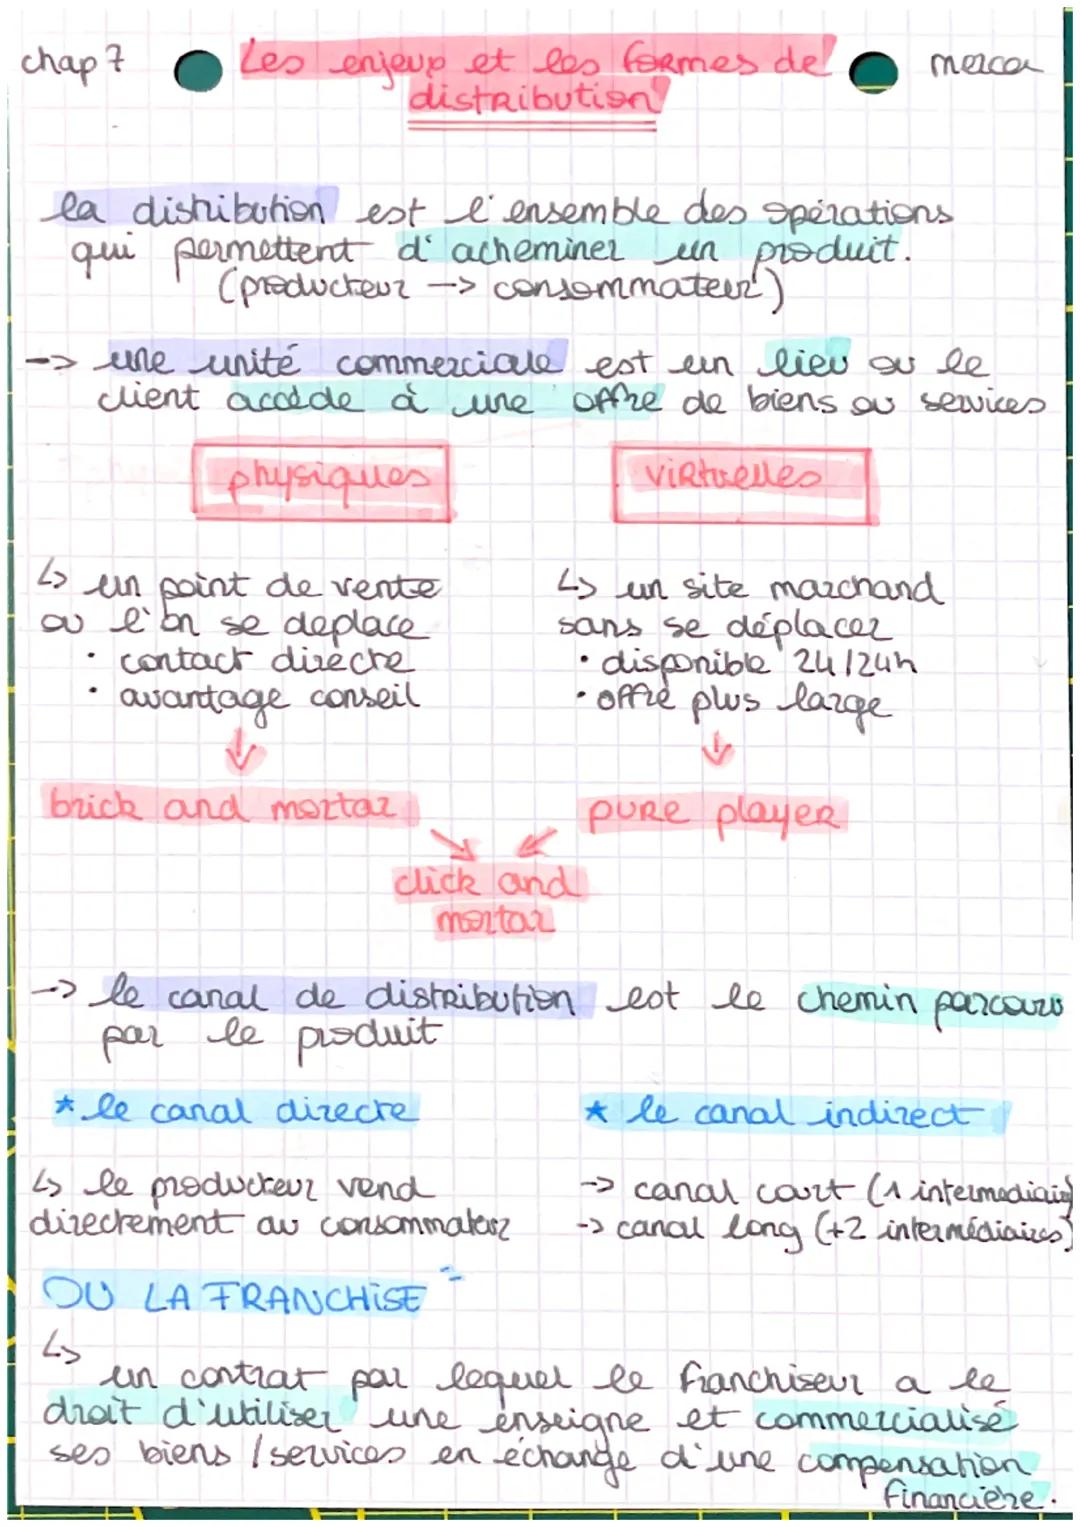 chap 7
Les enjeux et les formes de
distribution
merca
la distribution est l'ensemble des opérations
qui permettent d'acheminer un produit.
(producteur -> consommateur)
-> une unité commerciale est un lieu ou le
client accède à une offre de biens ou services
physiques
virtuelles
↳ un point de vente
ou l'on se deplace
· contact directe
· avantage conseil
↳ un site marchand
sans se déplacer
· disponible 24/24h
· offre plus large
brick and mortar
pure player
click and
mortar
-> le canal de distribution est le chemin parcouru
par le produit
* le canal directe
* le canal indirect
↳ le producteur vend
directement au consommateur
-> canal court (1 intermediaire)
-> canal long (+2 intermédiaires)
OU LA FRANCHISE =
↳
un contrat par lequel le franchiseur a le
droit d'utiliser une enseigne et commercialisé
ses biens / services en échange d'une compensation
financière.